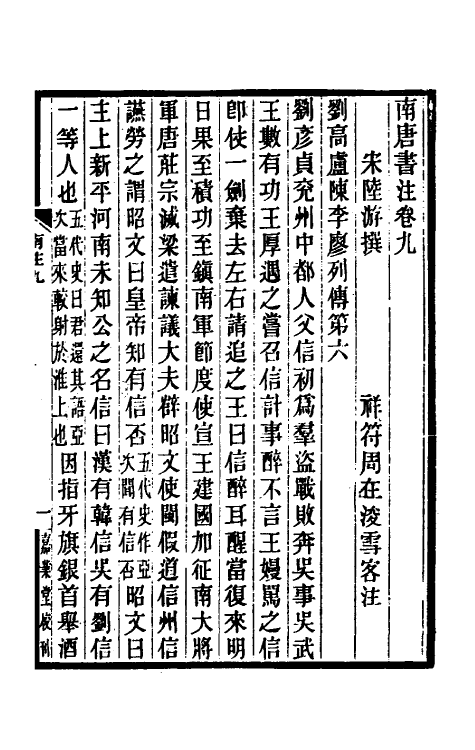 南唐書注卷九
宋陸游撰 祥符周在浚雪客注
劉高盧陳李廖列傳第六
劉彥貞兗州中都人父信初爲羣盜戰敗奔吳事吳武
王數有功王厚遇之嘗召信計事醉不言王嫚罵之信
卽仗一劍棄去左右請追之王曰信醉耳醒當復來明
日果至積功至鎭南軍節度使宣王建國加征南大將
軍唐莊宗滅梁遣諫議大夫薛昭文使閩假道信州信
讌勞之謂昭文曰皇帝知有信否五代史作亞次聞有信否昭文曰
主上新平河南未知公之名信曰漢有韓信吳有劉信
一等人也五代史曰君還其語亞次當來較射於淮上也因指牙旗銀首舉酒
南注九
一
嘉業堂校刊